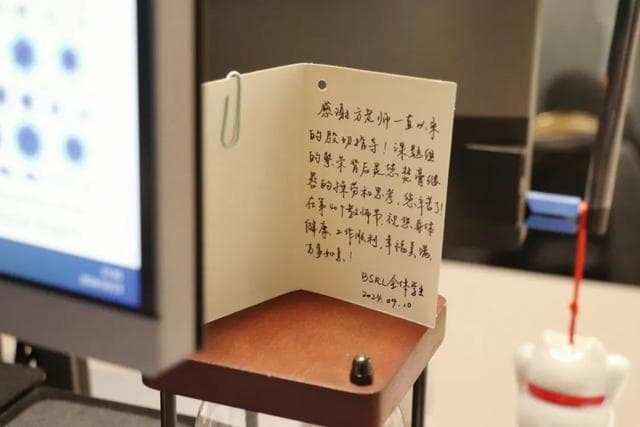 感谢方老师一直以来
的殷切指导！课题组
的繁荣背后是您焚膏继
晷的操劳和思考，您辛苦了！
在第40个教师节，祝您身体
健康，工作顺利，幸福美满，
万事如意！
BSRL全体学生
2024.09.10